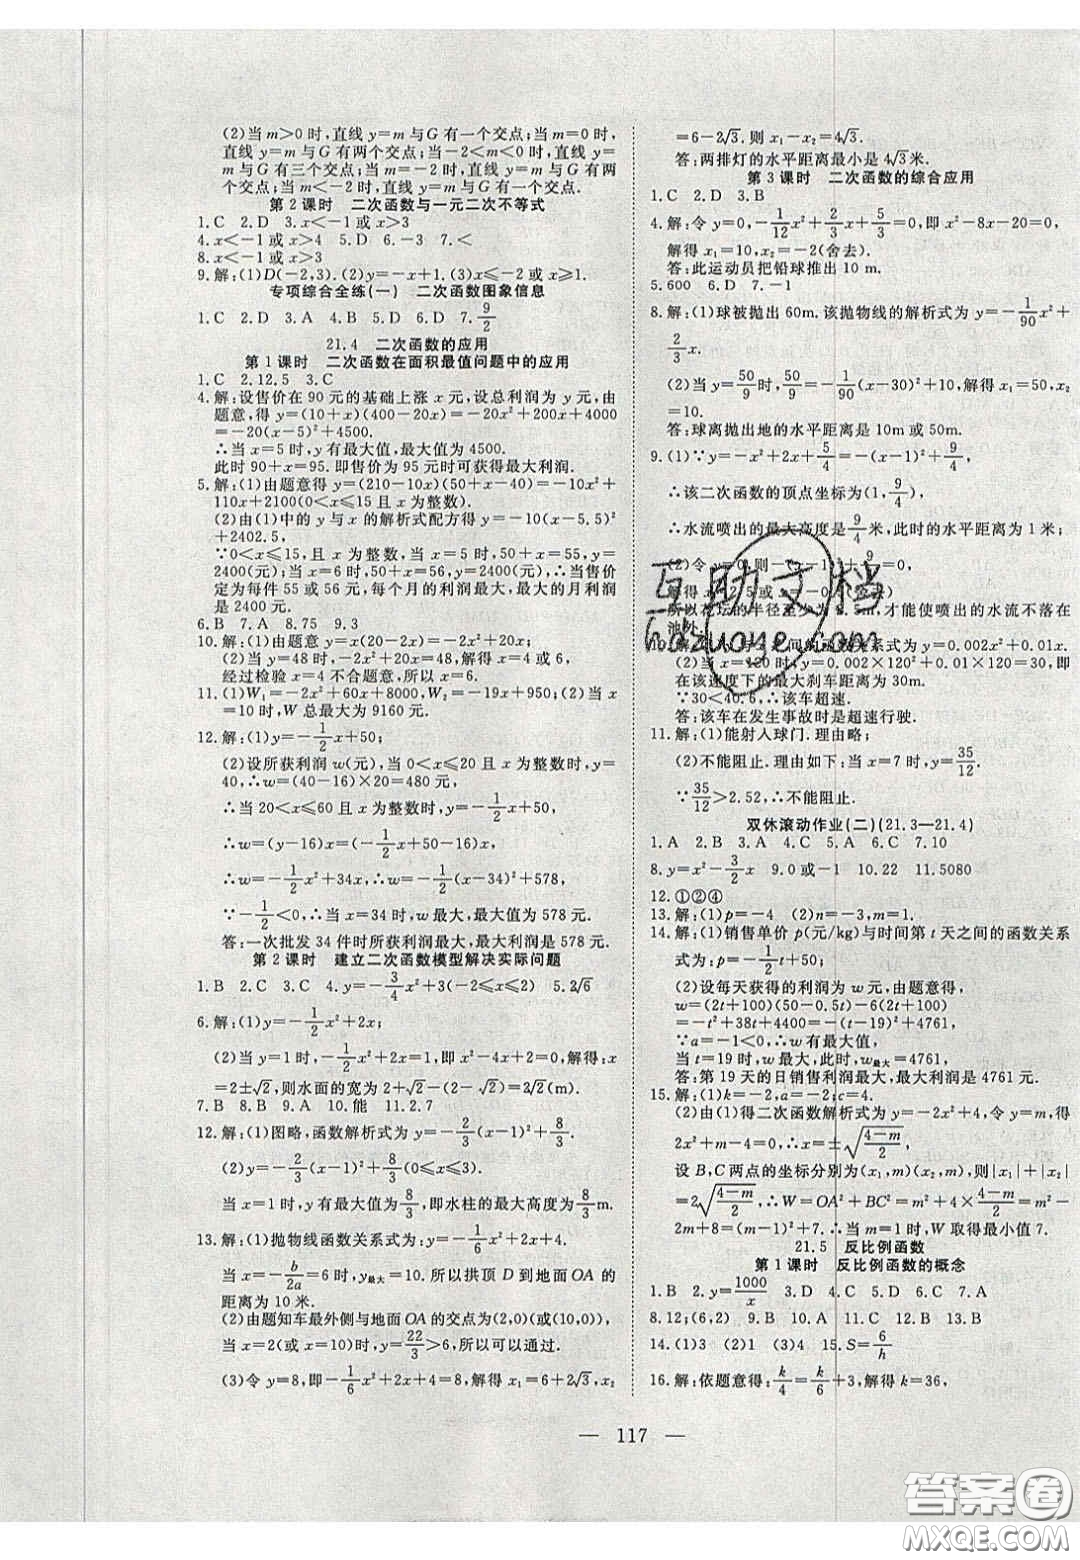 (2)当 m>0 时,直线 y=m 与G 有一个交点;当 m=0 时,
直线 y=m 与G 有两个交点;当-2<m<0 时,直线 y=m
与G 有三个交点;当 m=-2 时,直线 y=m 与G 有两
个交点;当 m<-2 时,直线 y=m 与G 有一个交点.
第 2 课时 二次函数与一元二次不等式
1.C 2.D 3.x<-1 或 x>3
4.x<-1 或 x>4 5.D 6.-3 7.<
8.x<-1 或 x>3
9.解:(1)D(-2,3).(2)y=-x+1.(3)x≤-2或 x≥1.
专项综合全练(一) 二次函数图象信息
1.C 2.D 3.A 4.B 5.D 6.D 7.9/2
21.4 二次函数的应用
第 1 课时 二次函数在面积最值问题中的应用
1.C 2.12.5 3.C
4.解:设售价在 90 元的基础上涨 x 元,设总利润为 y 元,由
题意,得 y=(10+x)(400-20x)=-20x²+200x+4000
=-20(x-5)²+4500.
∴当 x=5 时,y 有最大值,最大值为 4500.
此时 90+x=95.即售价为 95 元时可获得最大利润.
5.解:(1)由题意得 y=(210-10x)(50+x-40)=-10x²+
110x+2100(0<x≤15 且 x 为整数);
(2)由(1)中的 y 与 x 的解析式配方得 y=-10(x-5.5)²
+2402.5,
∵0<x≤15,且 x 为整数,当 x=5 时,50+x=55,y=
2400(元);当 x=6 时,50+x=56,y=2400(元);∴当售价
定为每件 55 或 56 元,每个月的利润最大,最大的月利润
是 2400 元.
6.B 7.A 8.75 9.3
10.解:(1)由题意可得 y=x(20-2x)=-2x²+20x;
(2)当 y=48 时,-2x²+20x=48,解得 x=4 或 6,
经过检验 x=4 不合题意,所以 x=6.
11.(1)W₁=-2x²+60x+8000,W₂=-19x+950;(2)当 x
=10 时,W 总最大为 9160 元.
12.解:(1)y=-1/2x+50;
(2)设所获利润 w(元),当 0<x≤20 且 x 为整数时,y=
40,∴w=(40-16)×20=480 元,
∴当 20<x≤60 且 x 为整数时,y=-1/2x+50,
∴w=(y-16)x=(-1/2x+50-16)x,
∴w=-1/2x²+34x,∴w=-1/2(x-34)²+578,
∵-1/2<0,∴当 x=34 时,w 最大,最大值为 578 元.
答:一次批发 34 件时所获利润最大,最大利润是 578 元.
第 2 课时 建立二次函数模型解决实际问题
1.B 2.C 3.C 4.y=-3/4x²+3(-2≤x≤2) 5.2√6
6.解:(1)y=-1/2x²+2x;
(2)当 y=1 时,-1/2x²+2x=1,即 x²-4x+2=0,解得:x
=2±√2,则水面的宽为 2+√2-(2-√2)=2√2(m).
7.B 8.B 9.A 10.能 11.2.7
12.解:(1)图略,函数解析式为 y=-2/3(x-1)²+8/3.
(2)y=-2/3(x-1)²+8/3(0≤x≤3),
当 x=1 时,y 有最大值为 8/3,即水柱的最大高度为 8/3m.
13.解:(1)抛物线函数关系式为:y=-1/6x²+2x+4.
当 x=-b/2a=6 时,y最大=10.所以拱顶 D 到地面OA 的
距离为 10 米.
(2)由题知车最外侧与地面 OA 的交点为(2,0)(或(10,0)),
当 x=2(或 x=10)时,y=22/3>6,所以可以通过.
(3)令 y=8,即-1/6x²+2x+4=8,解得 x₁=6+2√3,x₂
=6-2√3.则 x₁-x₂=4√3.
答:两排灯的水平距离最小是 4√3米.
第 3 课时 二次函数的综合应用
1.C 2.D 3.B
4.解:令 y=0,-1/12x²+2/3x+5/3=0,即 x²-8x-20=0,
解得 x₁=10,x₂=-2(舍去).
答:此运动员把铅球推出 10 m.
5.600 6.D 7.-1
8.解:(1)球被抛出 60m.该抛物线的解析式为 y=-1/90x²+
2/3x.
(2)当 y=50/9时,50/9=-1/90(x-30)²+10,解得 x₁=50,x₂
=10.
答:球离抛出地的水平距离是 10m 或 50m.
9.(1)∵y=-x²+2x+5/4=-(x-1)²+9/4,
∴该二次函数的顶点坐标为(1,9/4),
∴水流喷出的最大高度是9/4米,此时的水平距离为 1 米;
才能使喷出的水流不落在
间的函数关系式为 y=0.002x²+0.01x.
(2)当 x=120 时,y=0.002×120²+0.01×120=30,即
在该速度下的最大刹车距离为 30m.
∵30<40.6,∴该车超速.
答:该车在发生事故时是超速行驶.
11.解:(1)能射入球门.理由略;
(2)不能阻止.理由如下:当 x=7 时,y=35/12.
∵35/12>2.52,∴不能阻止.
双休滚动作业(二)(21.3—21.4)
1.A 2.B 3.A 4.C 5.A 6.C 7.10
8.y=x²-3/2x 9.0 或-1 10.22 11.5080
12.①②④
13.解:(1)p=-4 (2)n=-3,m=1.
14.解:(1)销售单价 p(元/kg)与时间第 t 天之间的函数关系
式为:p=-1/2t+50;
(2)设每天获得的利润为 w 元,由题意得,
w=(2t+100)(50-0.5t)-6(2t+100)
=-t²+38t+4400=-(t-19)²+4761,
∵a=-1<0,∴w 有最大值,
当 t=19 时,w最大,w最大=4761,
答:第 19 天的日销售利润最大,最大利润是 4761 元.
15.解:(1)k=-2,a=-2;c=4.
(2)由(1)得二次函数解析式为 y=-2x²+4,令 y=m,得
2x²+m-4=0,∴x=±√(4-m)/2,
设 B,C 两点的坐标分别为(x₁,m)(x₂,m),则|x₁|+|x₂|
=2√(4-m)/2,∴W=OA²+BC²=m²+4×(4-m)/2=m²-
2m+8=(m-1)²+7.∴当 m=1 时,W 取得最小值 7.
21.5 反比例函数
第 1 课时 反比例函数的概念
1.B 2.y=1000/x 3.D 4.C 5.C 6.D 7.A
8.12;(6,2) 9.B 10.A 11.C 12.B 13.B
14.(1)3 (2)1 (3)4 15.S=6/h
16.解:依题意得:k/4=k/6+3,解得 k=36,
— 117 —
互助文档
hdzuoye.com
答案圈
MXQE.COM